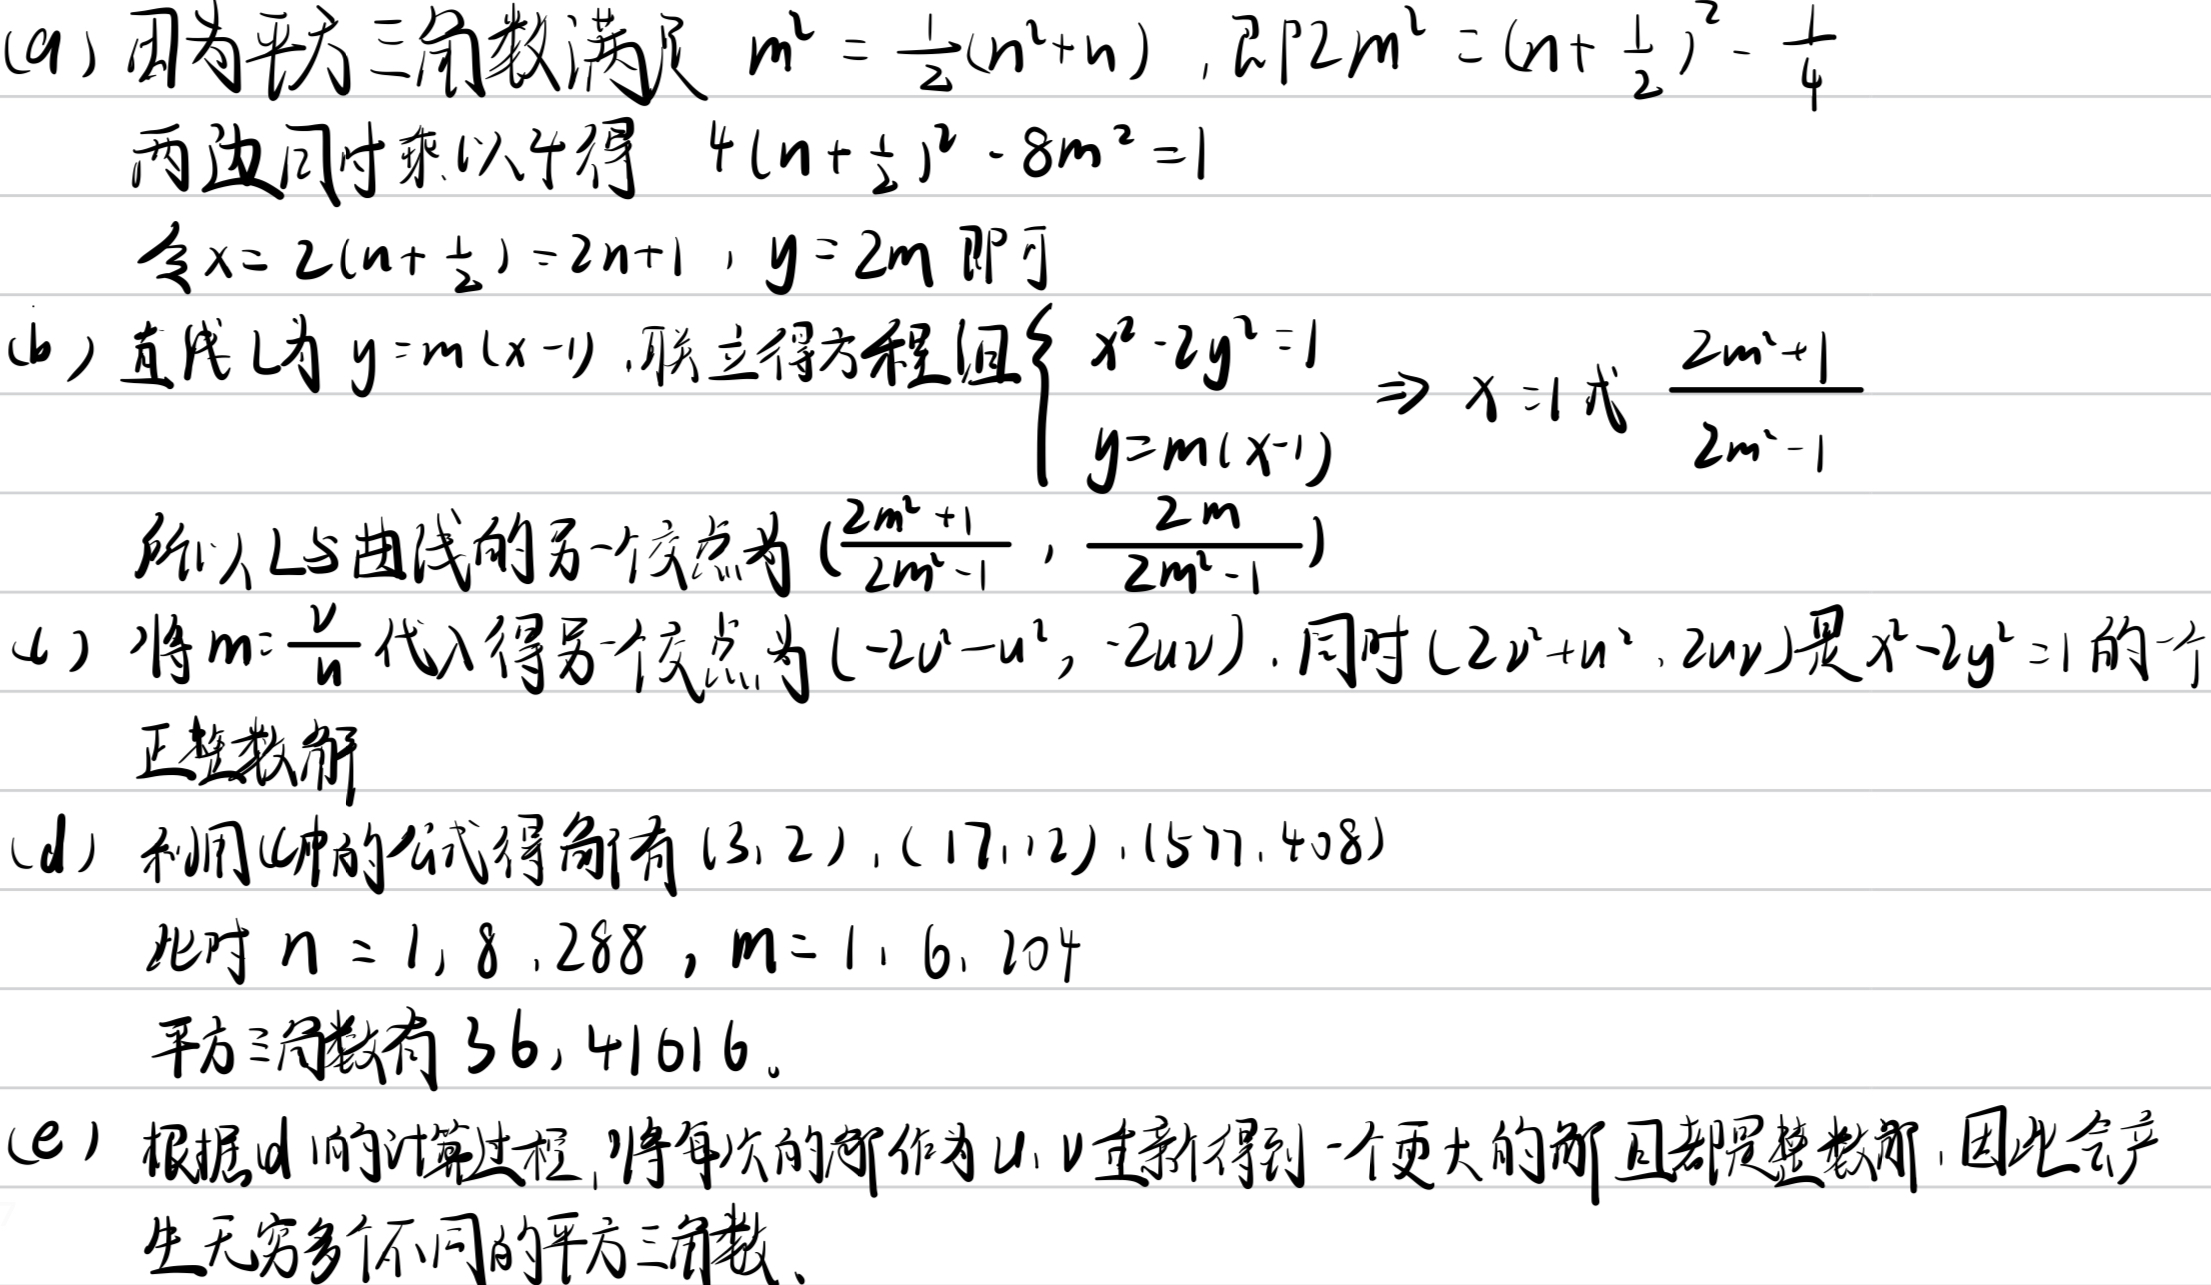 (a) 因为平方三角数满足 m² = 1/2(n²+n) , 即2m² = (n+1/2)² - 1/4
两边同时乘以4得 4(n+1/2)² - 8m² = 1
令x = 2(n+1/2) = 2n+1 , y = 2m 即可
(b) 直线L为 y=m(x-1) , 联立得方程组 { x²-2y²=1 y=m(x-1) ⇒ x=1或 (2m²+1)/(2m²-1)
所以L与曲线的另一个交点为 ((2m²+1)/(2m²-1) , 2m/(2m²-1))
(c) 将m=v/u代入得另一个交点为(-2v²-u², -2uv). 同时(2v²+u², 2uv)是x²-2y²=1的一个
正整数解
(d) 利用(c)中的公式得解有 (3,2), (17,12), (577,408)
此时 n = 1, 8, 288 , m = 1, 6, 204
平方三角数有 36, 41616。
(e) 根据d的计算过程,将每次的解作为u,v重新得到一个更大的解且都是整数解,因此会产
生无穷多个不同的平方三角数、